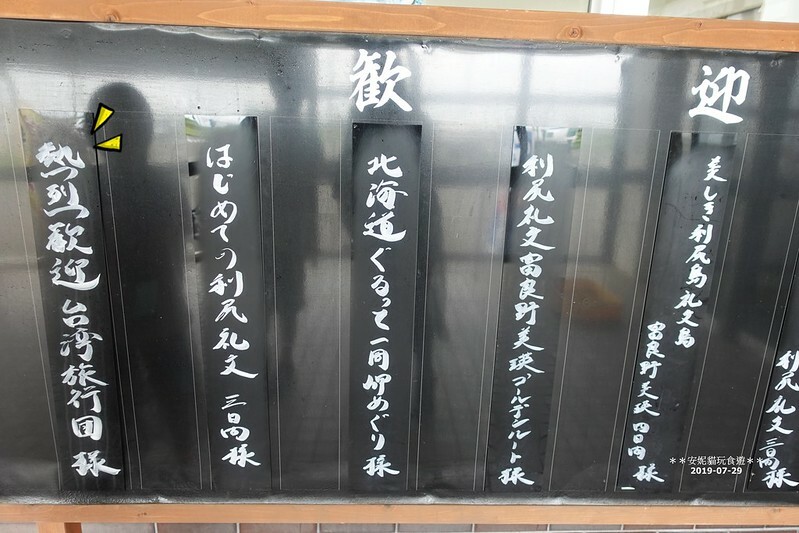 歓迎
利尻礼文 三日間 様
美しき利尻島礼文島
富良野美瑛 四日間 様
利尻礼文富良野美瑛ゴールデンルート 様
北海道ぐるっと一周岬めぐり 様
はじめての利尻礼文 三日間 様
熱烈歓迎 台湾旅行団 様
**安妮貓玩食遊**
2019-07-29